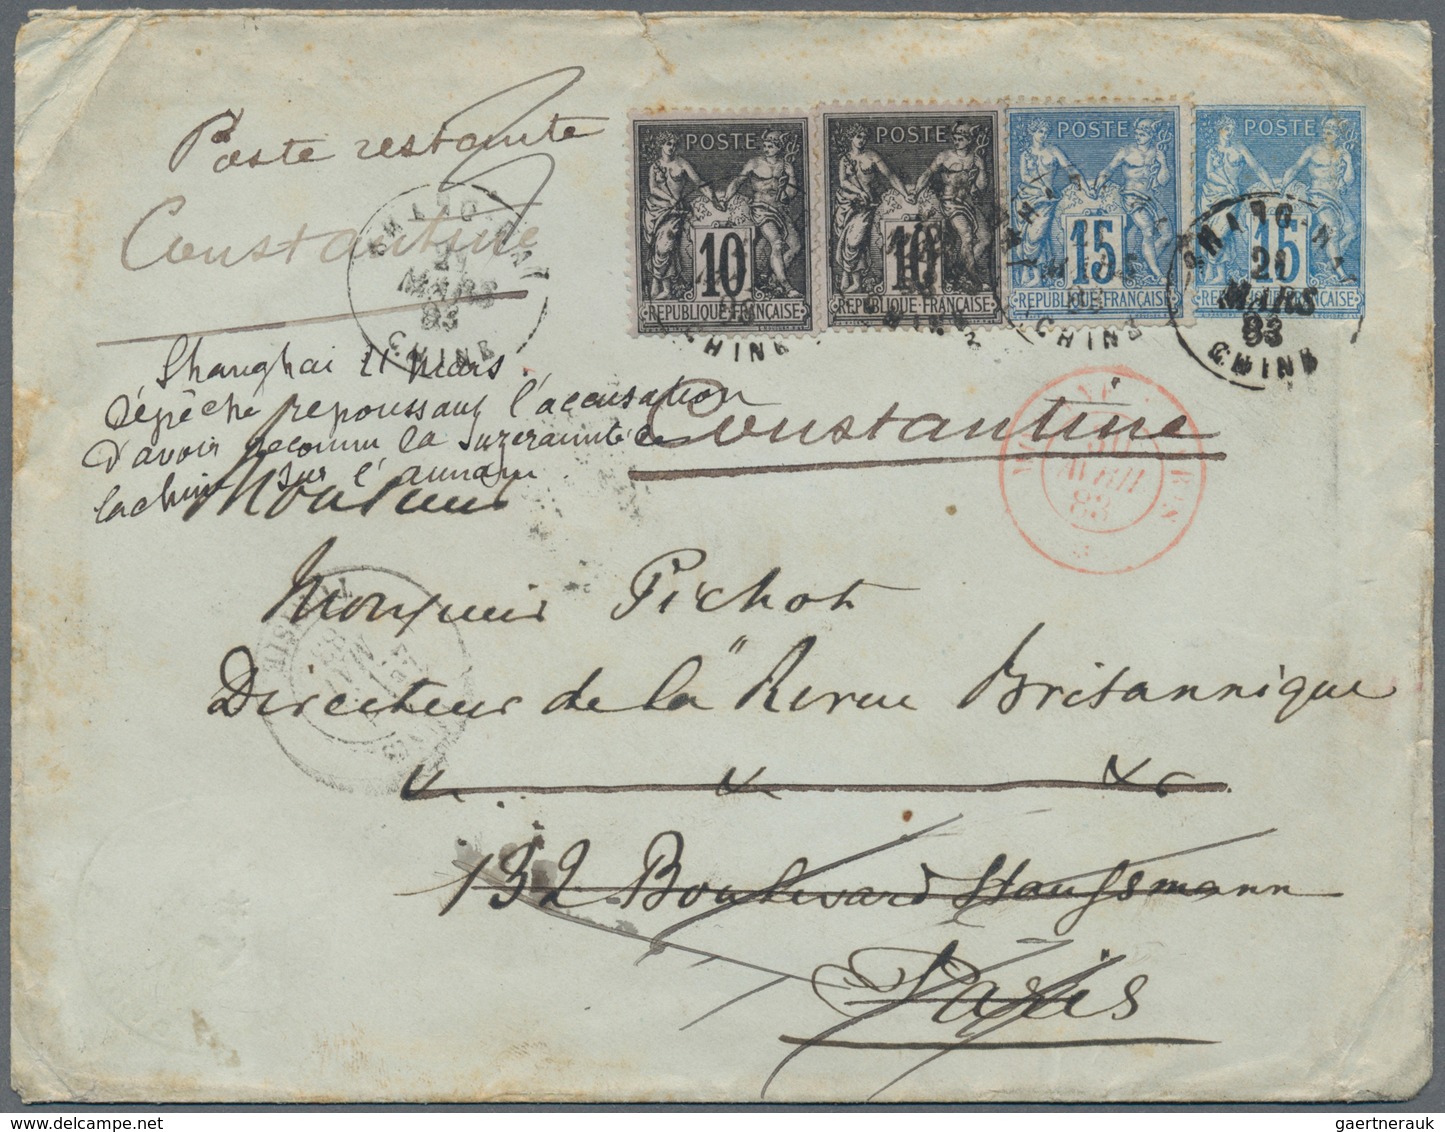 Poste restante
Constantine
POSTE
10
REPUBLIQUE FRANÇAISE
POSTE
10
REPUBLIQUE FRANÇAISE
POSTE
15
REPUBLIQUE FRANÇAISE
POSTE
15
REPUBLIQUE FRANÇAISE
SHANG-HAI
21
MARS
83
CHINE
CHINE
CHINE
CHINE
SHANG-HAI
21
MARS
83
CHINE
Shanghai 21 Mars.
Dépêche repoussant l'accusation
D'avoir reconnu la suzeraineté de
la chine sur l'annam
Constantine
AVRIL
83
Monsieur
Monsieur Pichot
Directeur de la "Revue Britannique
132 Boulevard Haussmann
Paris
gaertnerauk